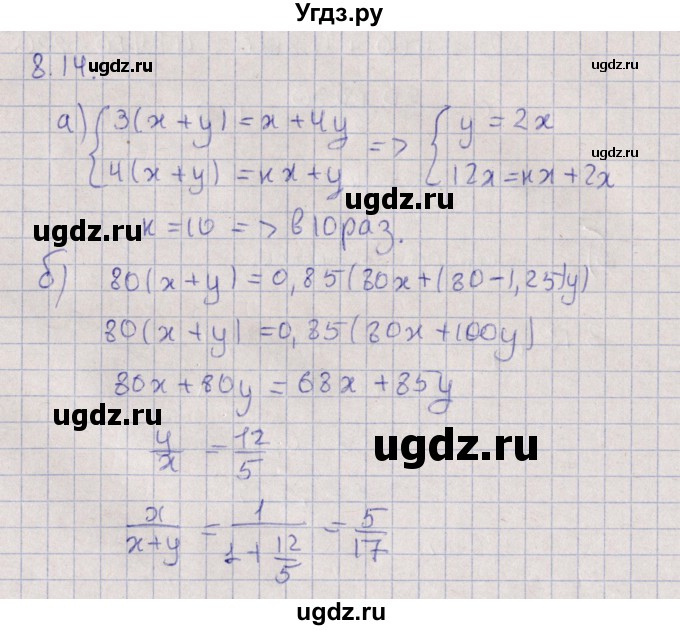 Угдз.ру
8.14.
ugdz.ru
ugdz.ru
а) { 3(x + y) = x + 4y => { y = 2x
4(x + y) = кx + y 12x = кx + 2x
ugdz.ru
ugdz.ru
к = 10 => в 10 раз.
б) 80(x + y) = 0,85(80x + (80 · 1,25)y)
ugdz.ru
80(x + y) = 0,85(80x + 100y)
80x + 80y = 68x + 85y
ugdz.ru
ugdz.ru
y/x = 12/5
x/(x+y) = 1/(1 + 12/5) = 5/17
ugdz.ru
ugdz.ru